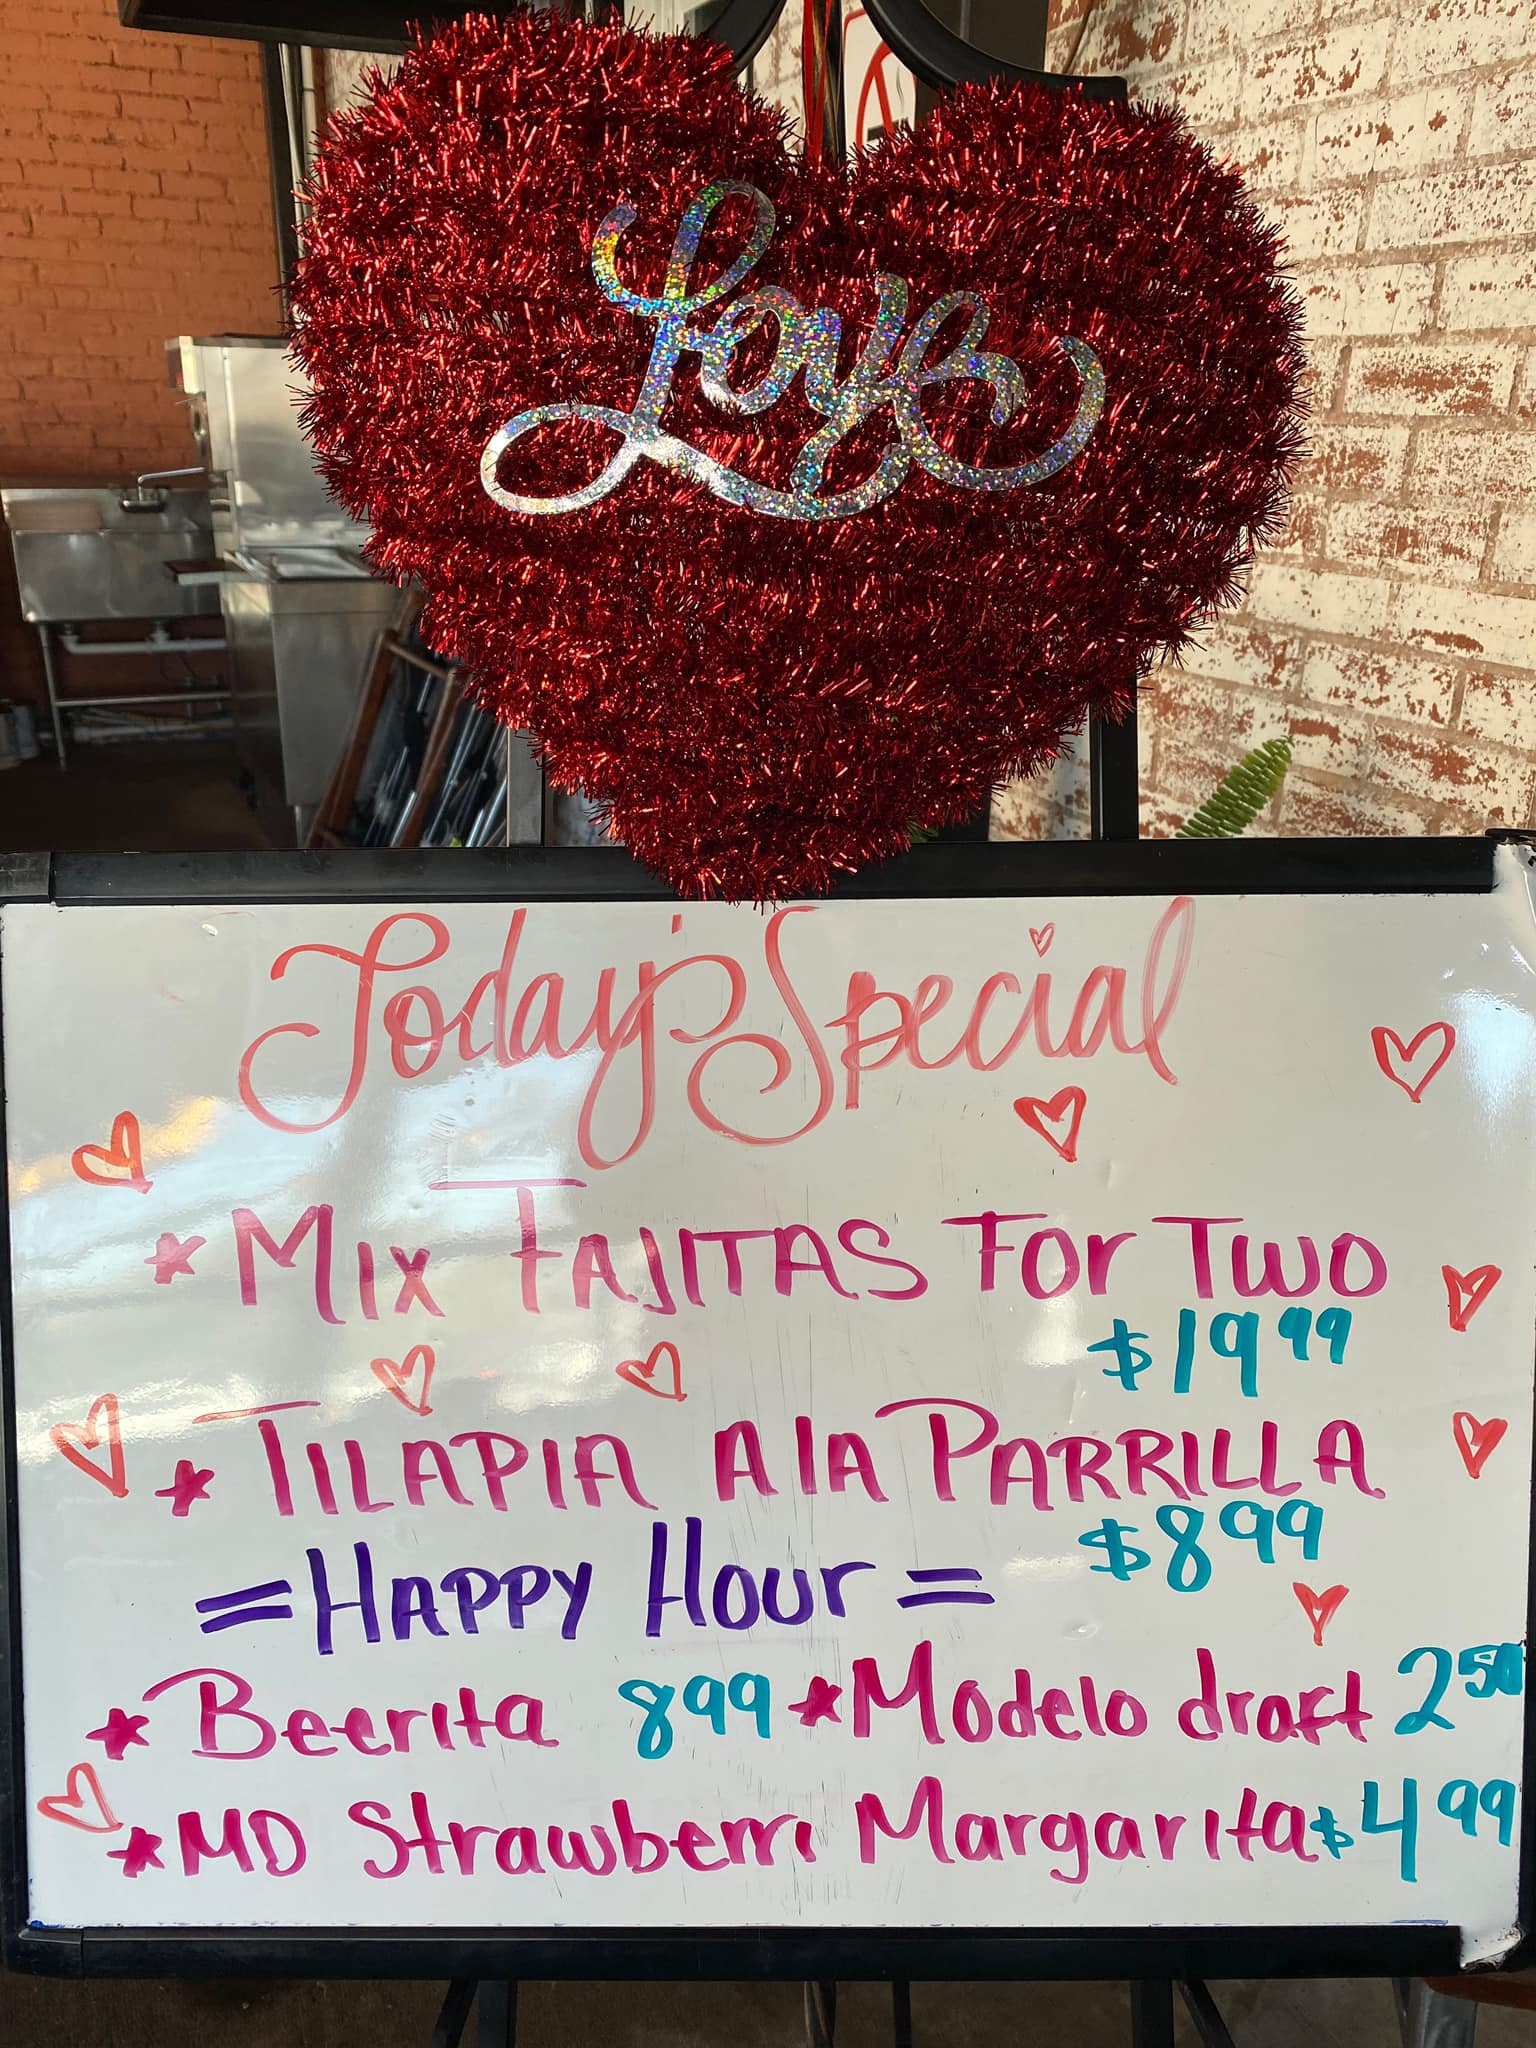 Love
Today's Special
* MIX FAJITAS FOr TWO
$19 99
* TILAPIA AlA PARRILLA
$8 99
= HAPPY HOUr =
* Beerita 8 99 * Modelo draft 2 50
* MD Strawberri Margarita $4 99